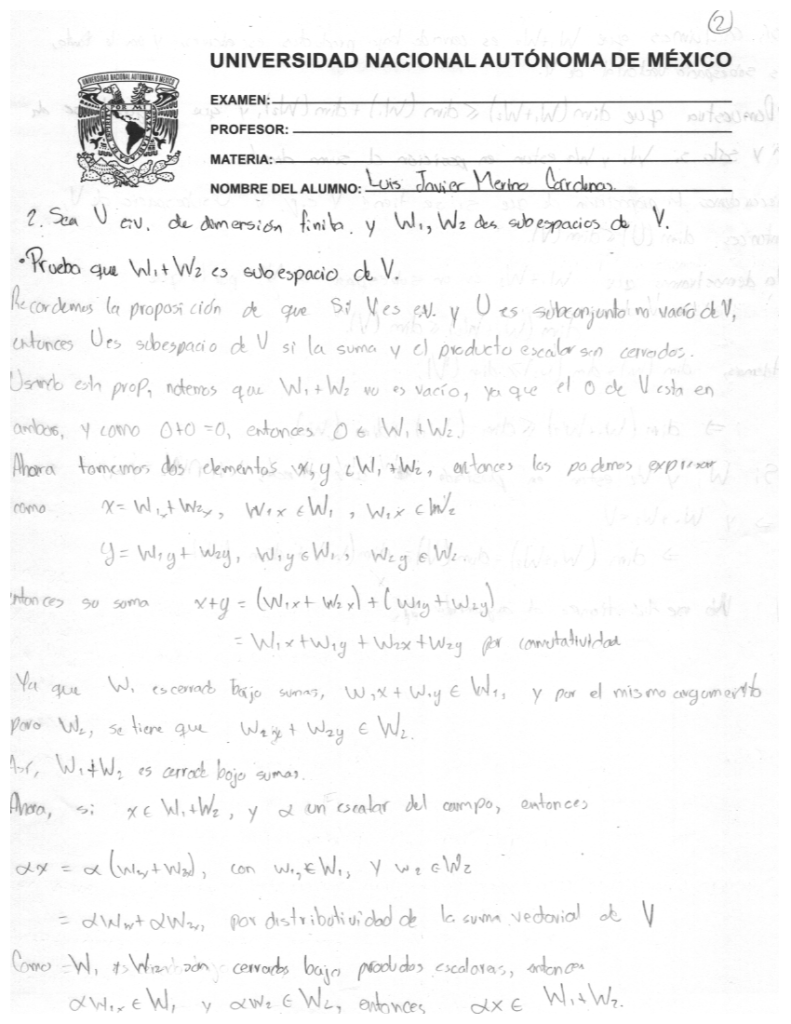 (2)
UNIVERSIDAD NACIONAL AUTÓNOMA DE MÉXICO
EXAMEN:
PROFESOR:
MATERIA:
NOMBRE DEL ALUMNO: Luis Javier Merino Cardenas
2. Sea V e.v. de dimensión finita y W₁, W₂ dos subespacios de V.
• Prueba que W₁+W₂ es subespacio de V.
Recordemos la proposición de que Si V es e.v. y U es subconjunto no vacío de V,
entonces U es subespacio de V si la suma y el producto escalar son cerrados.
Usando esta prop, notemos que W₁+W₂ no es vacío, ya que el 0 de V esta en
ambos, y como 0+0=0, entonces 0 ∈ W₁+W₂.
Ahora tomemos dos elementos x, y ∈ W₁+W₂, entonces los podemos expresar
como x = w₁x + w₂x, w₁x ∈ W₁, w₁x ∈ W₂
y = w₁y + w₂y, w₁y ∈ W₁, w₂y ∈ W₂
entonces su suma x+y = (w₁x + w₂x) + (w₁y + w₂y)
= w₁x + w₁y + w₂x + w₂y por conmutatividad
Ya que W₁ es cerrado bajo sumas, w₁x + w₁y ∈ W₁, y por el mismo argumento
para W₂, se tiene que w₂x + w₂y ∈ W₂.
Así, W₁+W₂ es cerrado bajo sumas.
Ahora, si x ∈ W₁+W₂, y α un escalar del campo, entonces
αx = α(w₁x + w₂x), con w₁x ∈ W₁, y w₂ ∈ W₂
= αw₁x + αw₂x, por distributividad de la suma vectorial de V
Como W₁ y W₂ son cerrados bajo productos escalares, entonces
αw₁x ∈ W₁ y αw₂ ∈ W₂, entonces αx ∈ W₁+W₂.